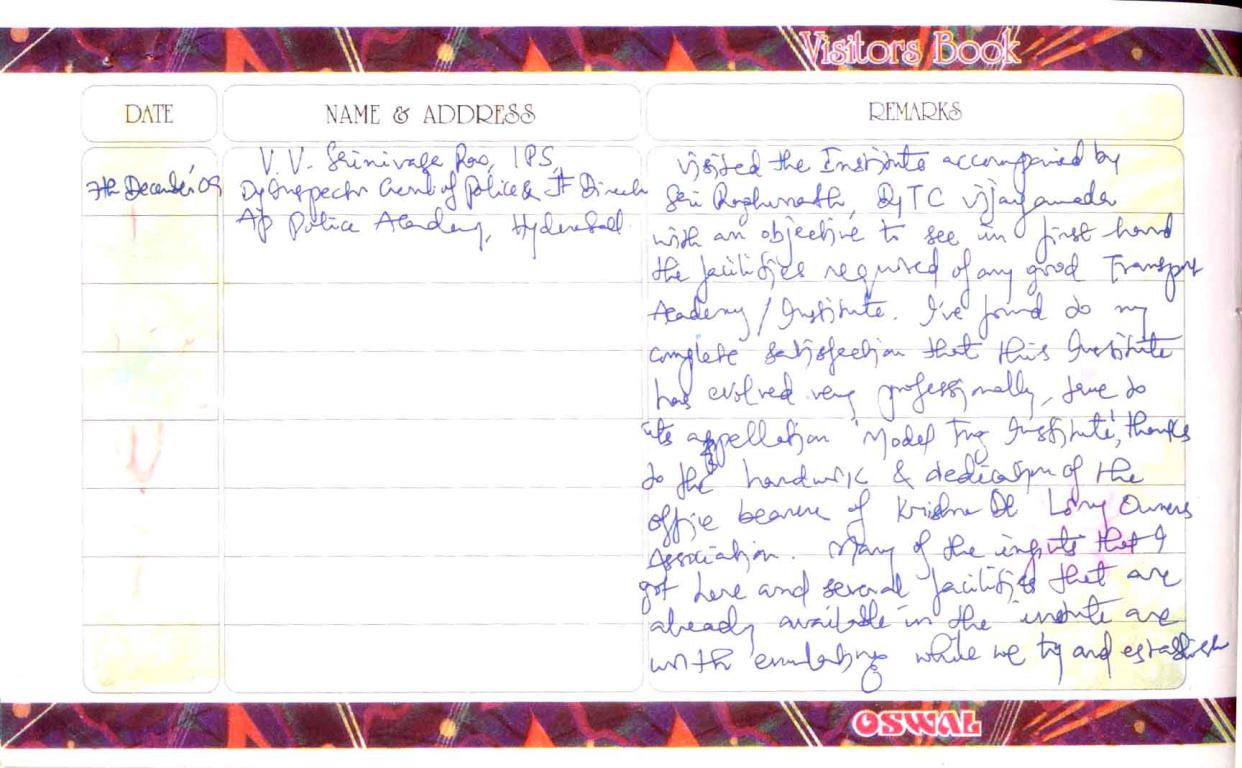 Visitors Book
DATE
NAME & ADDRESS
REMARKS
7th December'09
V. V. Srinivasa Rao, IPS,
Dy Inspector Genl of Police & Jt Director
AP Police Academy, Hyderabad.
Visited the Institute accompanied by
Sri Raghunath, DyTC Vijayawada
with an objective to see in first hand
the facilities required of any good Transport
Academy / Institute. I've found to my
complete satisfaction that this Institute
has evolved very professionally, true to
its appellation 'Model Trg Institute', thanks
to the hardwork & dedication of the
office bearers of Krishna Dt Lorry Owners
Association. Many of the inputs that I
got here and several facilities that are
already available in the institute are
worth emulating while we try and establish
OSWAL